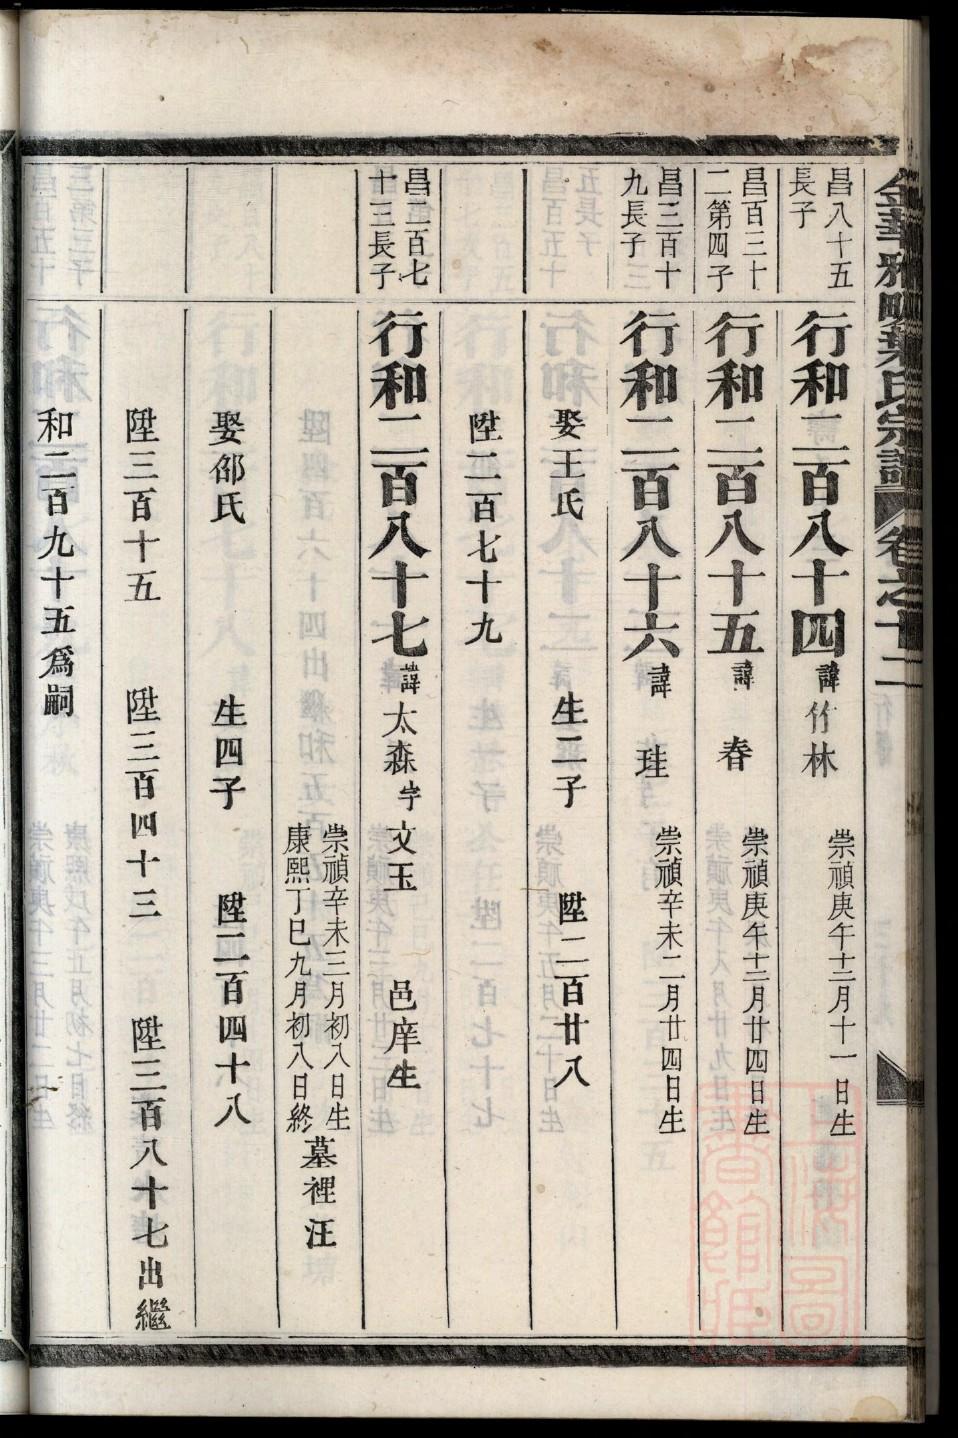 金華雅畈葉氏宗譜 卷之十二
昌八十五
長子
行和二百八十四 諱 竹林
崇禎庚午十二月十一日生
昌百三十
二第四子
行和二百八十五 諱 春
崇禎庚午十二月廿四日生
昌三百十
九長子
行和二百八十六 諱 珪
崇禎辛未二月廿四日生
娶王氏 生二子 陞二百廿八
陞二百七十九
昌二百七
十三長子
行和二百八十七 諱 太森 字 文玉 邑庠生
崇禎辛未三月初八日生
康熙丁巳九月初八日終
墓裡汪
娶邵氏 生四子 陞二百四十八
陞三百十五 陞三百四十三 陞三百八十七出繼
和二百九十五爲嗣